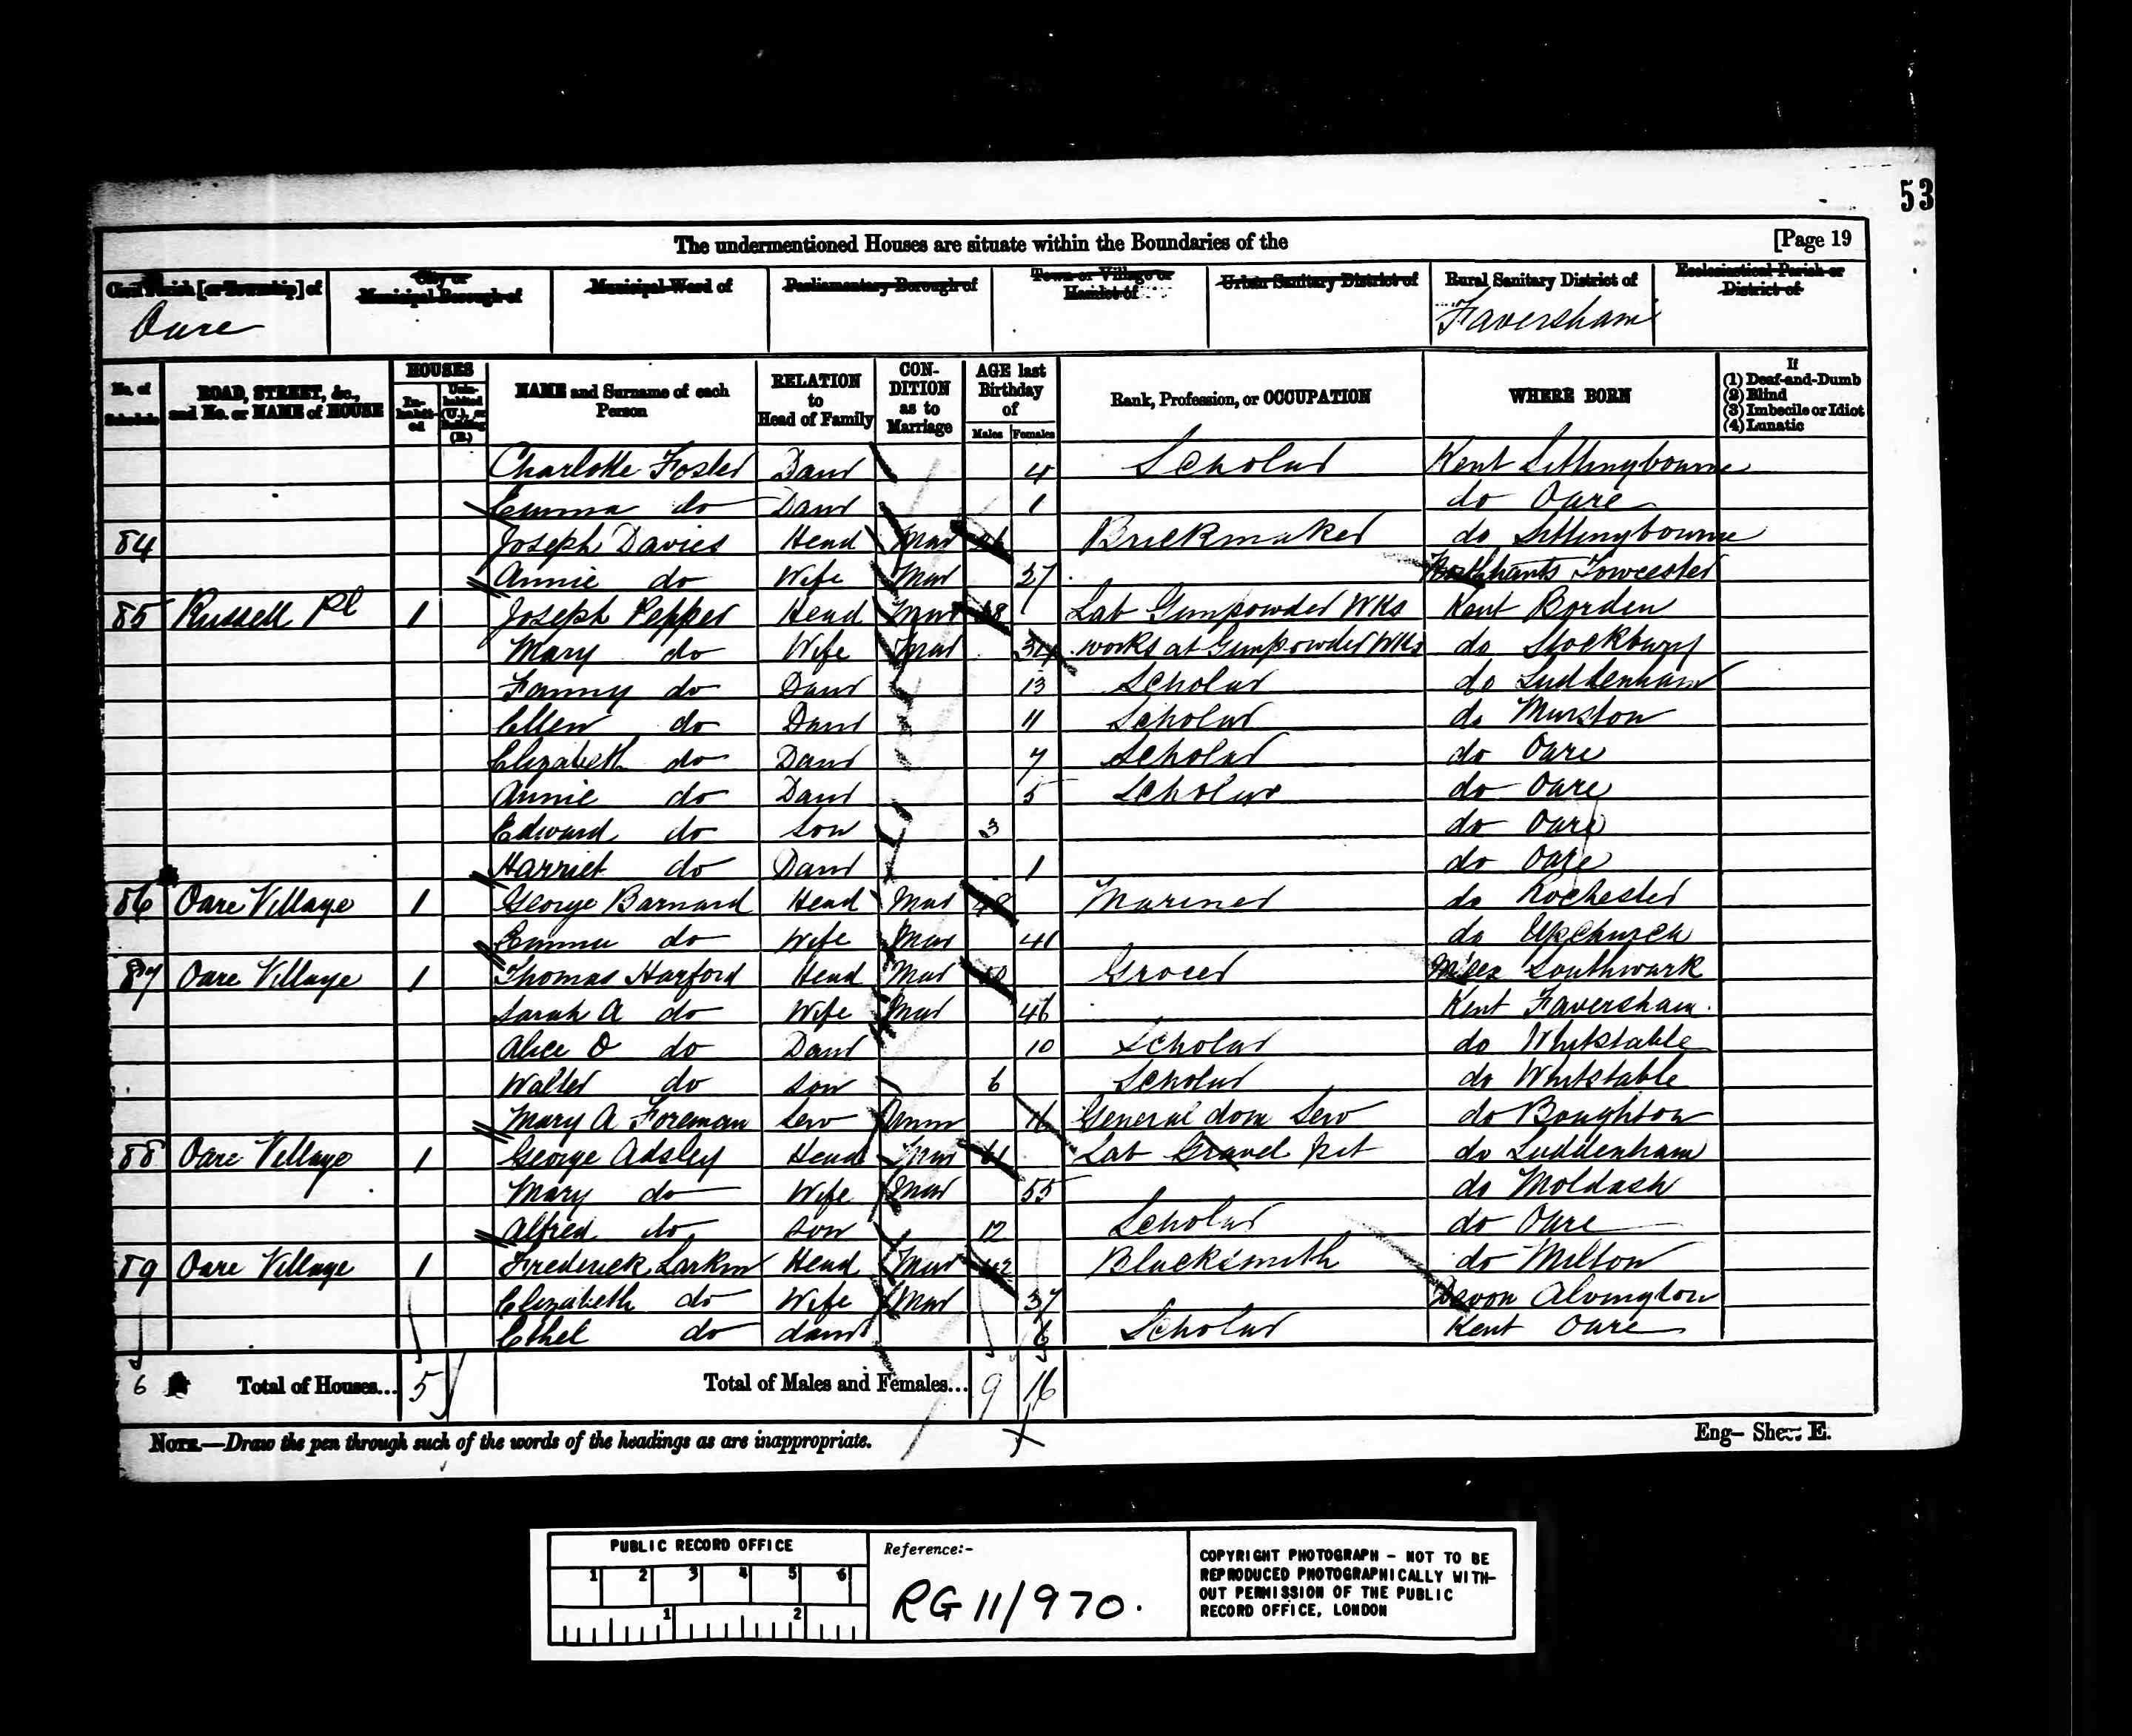 53
The undermentioned Houses are situate within the Boundaries of the [Page 19
Civil Parish [or Township] of City or Municipal Borough of Municipal Ward of Parliamentary Borough of Town or Village or Hamlet of Urban Sanitary District of Rural Sanitary District of Ecclesiastical Parish or District of
Oare Faversham
No. of Schedule ROAD, STREET, &c., and No. or NAME of HOUSE HOUSES In-habit-ed Unin-habited (U.), or Building (B.) NAME and Surname of each Person RELATION to Head of Family CON-DITION as to Marriage AGE last Birthday of Males Females Rank, Profession, or OCCUPATION WHERE BORN If (1) Deaf-and-Dumb (2) Blind (3) Imbecile or Idiot (4) Lunatic
Charlotte Foster Daur 4 Scholar Kent Sittingbourne
Emma do Daur 1 do Oare
84 Joseph Davies Head Mar Brickmaker do Sittingbourne
Annie do Wife Mar 27 Northhants Towcester
85 Russell Pl 1 Joseph Pepper Head Mar 38 Lab Gunpowder Wks Kent Borden
Mary do Wife Mar 34 works at Gunpowder Wks do Stockbury
Fanny do Daur 13 Scholar do Luddenham
Ellen do Daur 11 Scholar do Murston
Elizabeth do Daur 7 Scholar do Oare
Annie do Daur 5 Scholar do Oare
Edward do Son 3 do Oare
Harriet do Daur 1 do Oare
86 Oare Village 1 George Barnard Head Mar Mariner do Rochester
Emma do Wife Mar 41 do Upchurch
87 Oare Village 1 Thomas Harford Head Mar Grocer Southwark
Sarah A do Wife Mar 46 Kent Faversham
Alice O do Daur 10 Scholar do Whitstable
Walter do Son 6 Scholar do Whitstable
Mary A Foreman Serv Unm 16 General dom Serv do Boughton
88 Oare Village 1 George Adsley Head Mar 61 Lab Gravel Pit do Luddenham
Mary do Wife Mar 55 do Moldash
Alfred do Son 12 Scholar do Oare
89 Oare Village 1 Frederick Larkin Head Mar 42 Blacksmith do Milton
Elizabeth do Wife Mar 37 Devon Alvington
Ethel do daur 6 Scholar Kent Oare
6 Total of Houses... 5 Total of Males and Females... 9 16
NOTE.—Draw the pen through such of the words of the headings as are inappropriate. Eng— Sheet E.
PUBLIC RECORD OFFICE
1 2 3 4 5 6
1 2
Reference:-
RG 11/970.
COPYRIGHT PHOTOGRAPH - NOT TO BE
REPRODUCED PHOTOGRAPHICALLY WITH-
OUT PERMISSION OF THE PUBLIC
RECORD OFFICE, LONDON